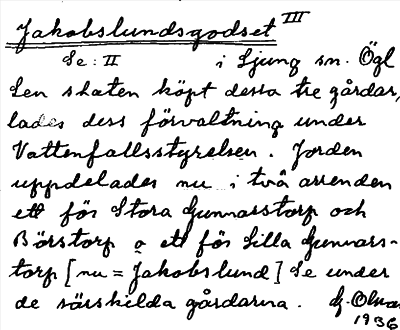 Jakobslundsgodset III
Se: II i Ljung sn. Ögl
Sen staten köpt dessa tre gårdar,
lades dess förvaltning under
Vattenfallsstyrelsen. Jorden
uppdelades nu i två arrenden
ett för Stora Gunnarstorp och
Börstorp o ett för Lilla Gunnars-
torp [nu = Jakobslund] Se under
de särskilda gårdarna. G. Olvas
1936